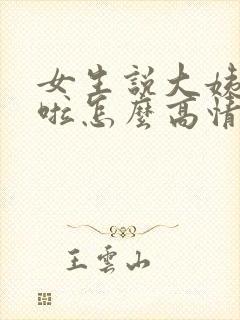 女生説大姨
啦怎麼高情
王雲山